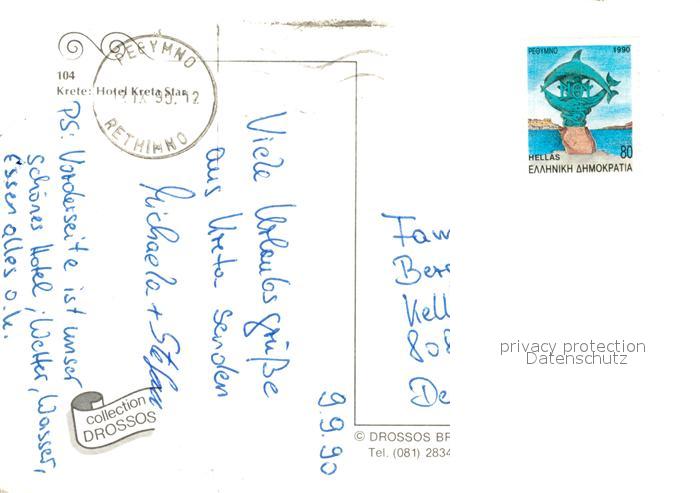 104
Krete: Hotel Kreta Star
ΡΕΘΥΜΝΟ
IX 90. 12
RETHIMNO
9.9.90
Viele Urlaubsgrüße
aus Kreta senden
Michaela + Stefan
PS: Vorderseite ist unser
schönes Hotel; Wetter, Wasser,
Essen alles o.k.
collection
DROSSOS
ΡΕΘΥΜΝΟ 1990
HELLAS 80
ΕΛΛΗΝΙΚΗ ΔΗΜΟΚΡΑΤΙΑ
Fam
Ber
Kell
808
De
privacy protection
Datenschutz
© DROSSOS BR
Tel. (081) 2834